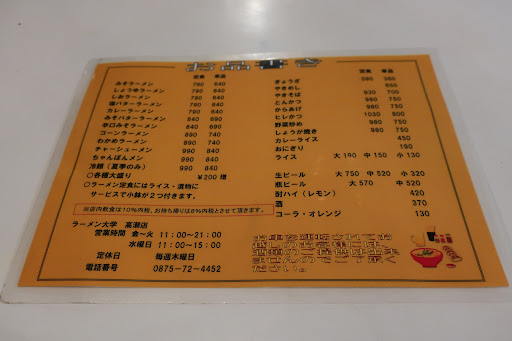 お品書き
定食 単品
みそラーメン 790 640
しょうゆラーメン 790 640
しおラーメン 790 640
塩バターラーメン 790 640
カレーラーメン 790 640
みそバターラーメン 890 740
辛口みそラーメン 890 740
コーンラーメン 890 740
わかめラーメン 890 740
チャーシューメン 990 840
ちゃんぽんメン 990 840
冷麺（夏季のみ） 990 840
○各種大盛り ¥200増
○ラーメン定食にはライス・漬物に
サービスで小鉢が2つ付きます。
※店内飲食は10％内税、お持ち帰りは8％内税とさせて頂きます。
ラーメン大学 高瀬店
営業時間 金〜火 11：00〜21：00
水曜日 11：00〜15：00
定休日 毎週木曜日
電話番号 0875-72-4452
定食 単品
ぎょうざ 590 360
やきめし 650
やきそば 930 700
とんかつ 980 750
からあげ 980 750
ヒレかつ 1030 800
野菜炒め 980 750
しょうが焼き 980 750
カレーライス 450
おにぎり 190
ライス 大190 中150 小130
生ビール 大750 中520 小320
瓶ビール 大570 中520
酎ハイ（レモン） 420
酒 370
コーラ・オレンジ 130
お車を運転されてお
越しのお客様には、
酒類のご提供は出来
ませんのでご了承く
ださい。